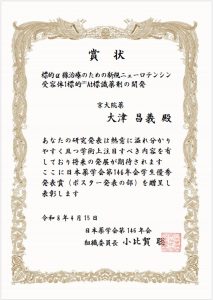 賞状
標的α線治療のための新規ニューロテンシン
受容体1標的²¹¹At標識薬剤の開発
京大院薬
大津 昌義 殿
あなたの研究発表は熱意に溢れ分かり
やすく且つ学術上注目すべき内容を有
しており将来の発展が期待されます
ここに日本薬学会第146年会学生優秀
発表賞(ポスター発表の部)を贈呈し
表彰します
令和8年4月15日
日本薬学会第146年会
組織委員長 小比賀 聡